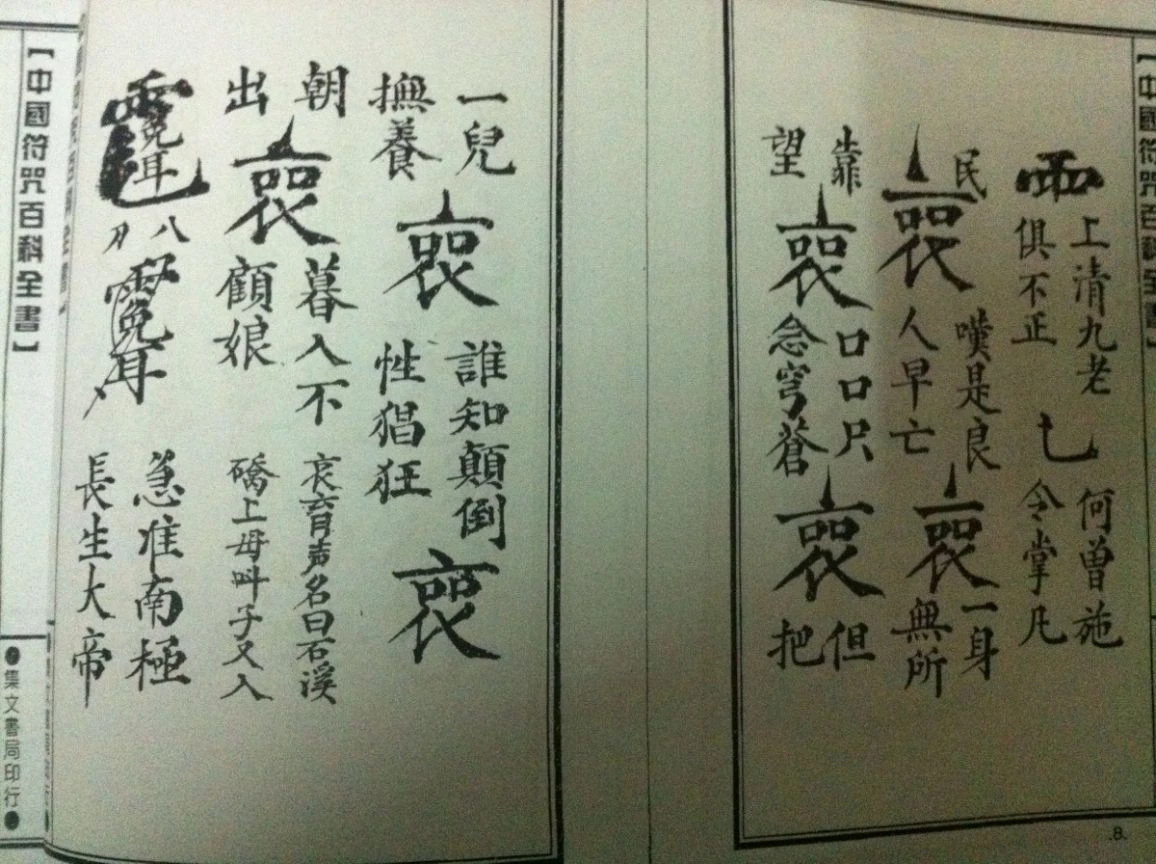 【中國符咒百科全書】
上清九老
何曾施
俱不正
令掌凡
民
嘆是良
一身
人早亡
無所
靠
口口尺
但
望
念穹蒼
把
.8.
一兒
誰知顛倒
撫養
性猖狂
朝
暮入不
哀育声名曰石溪
出
顧娘
礄上母叫子又入
八
急准南極
長生大帝
【中國符咒百科全書】
集文書局印行